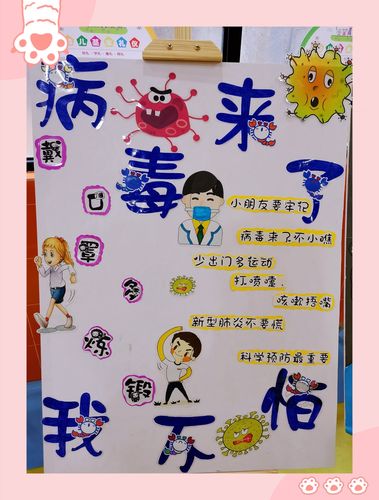 病毒来了
戴口罩
多锻炼
小朋友要牢记
病毒来了不小瞧
少出门多运动
打喷嚏，
咳嗽捂嘴
新型肺炎不要慌
科学预防最重要
我不怕